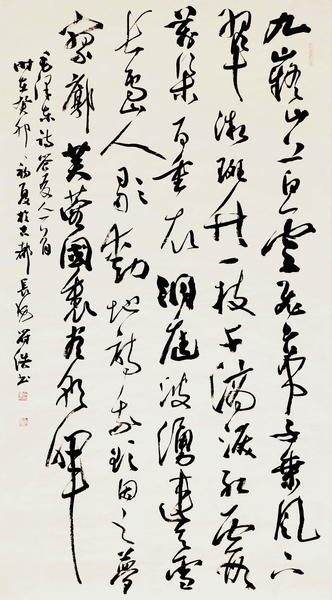 九嶷山上白雲飛帝子乘風下
翠微斑竹一枝千滴淚紅霞
萬朵百重衣洞庭波湧連天雪
長島人歌動地詩我欲因之夢
寥廓芙蓉國裏盡朝暉
毛澤東詩答友人一首
時在癸卯初夏於京都長河浩書